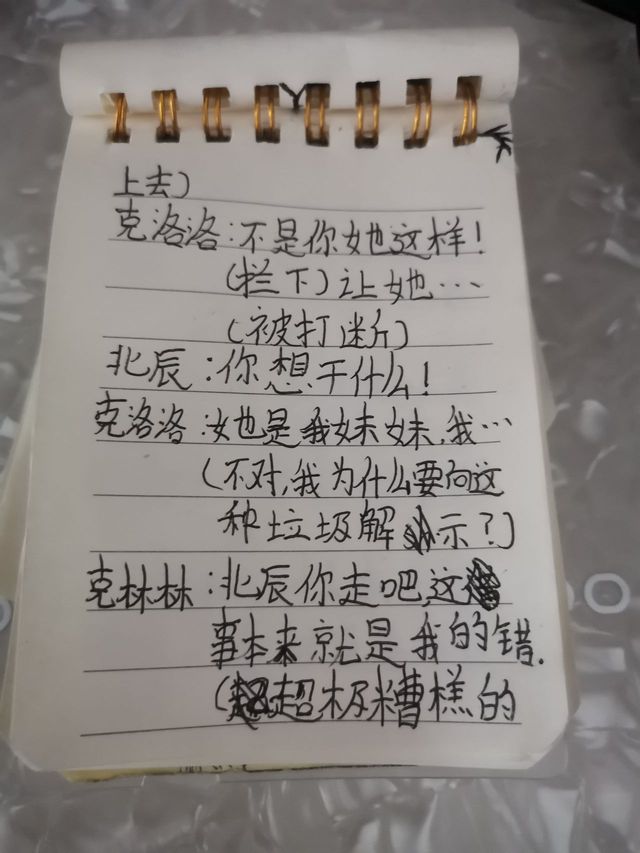 上去)
克洛洛:不是你她这样!
(拦下)让她…
(被打断)
北辰:你想干什么!
克洛洛:她是我妹妹,我…
(不对,我为什么要向这
种垃圾解示?)
克林林:北辰你走吧,这
事本来就是我的错.
(超极糟糕的